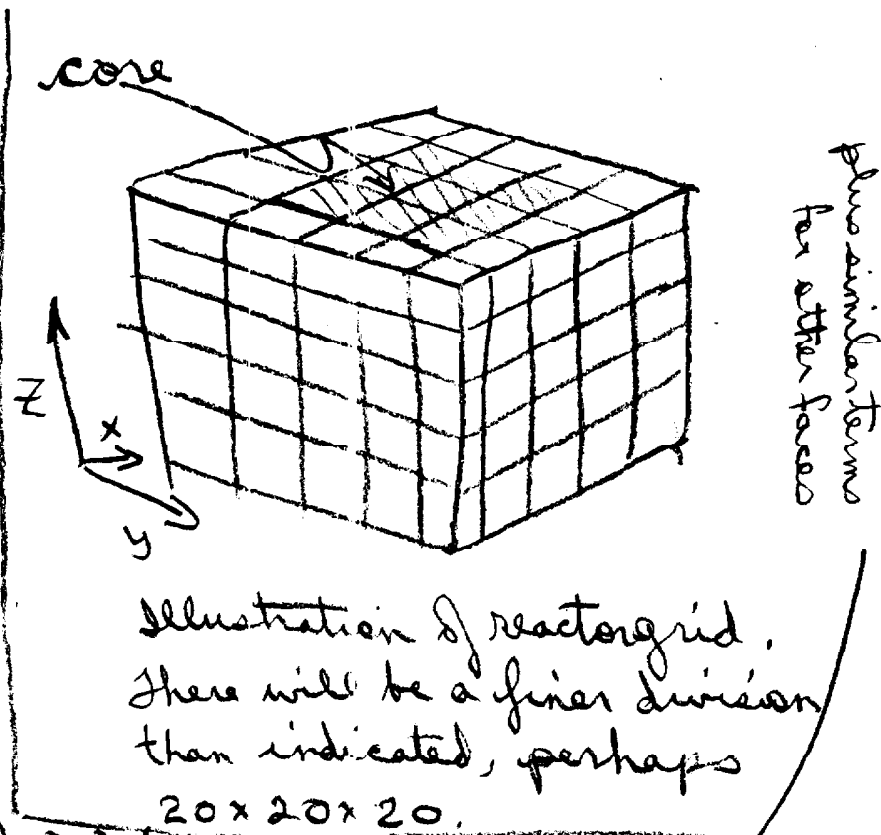 core
plus similar terms
for other faces
Z
x
y
Illustration of reactor grid.
There will be a finer division
than indicated, perhaps
20 x 20 x 20.